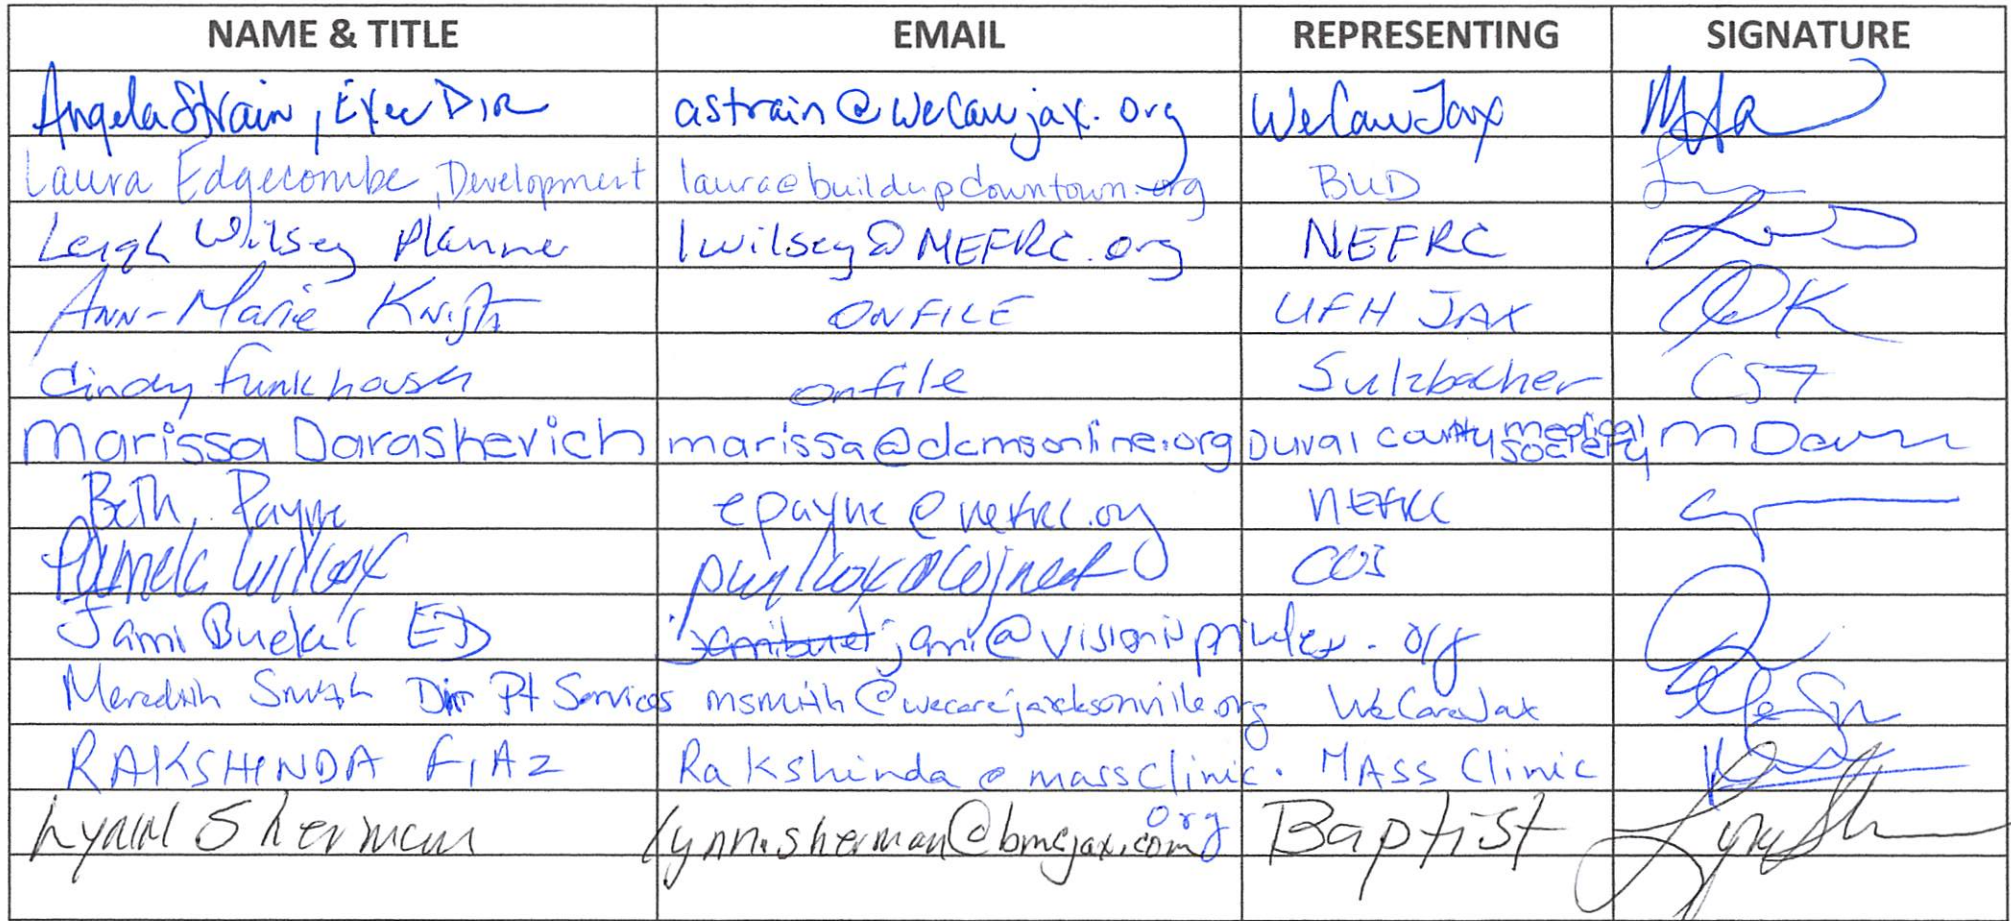 NAME & TITLE EMAIL REPRESENTING SIGNATURE
Angela Strain, Exec Dir astrain@WeCarejax.org WeCareJax
Laura Edgecombe, Development laura@buildupdowntown.org BUD
Leigh Wilsey Planner lwilsey@NEFRC.org NEFRC
Ann-Marie Knight ON FILE UFH JAX
Cindy Funkhouser on file Sulzbacher CSF
Marissa Daraskevich marissa@dcmsonline.org Duval County medical society
Beth Payne epayne@nefrc.org NEFRC
Pamela Wilcox pwilcox@coj.net COJ
Jami Bueker ED jami@visionispriceless.org
Meredith Smith Dir Pt Services msmith@wecarejacksonville.org WeCareJax
RAKSHINDA FIAZ Rakshinda@massclinic.org MASS Clinic
Lynn Sherman lynn.sherman@bmcjax.com Baptist